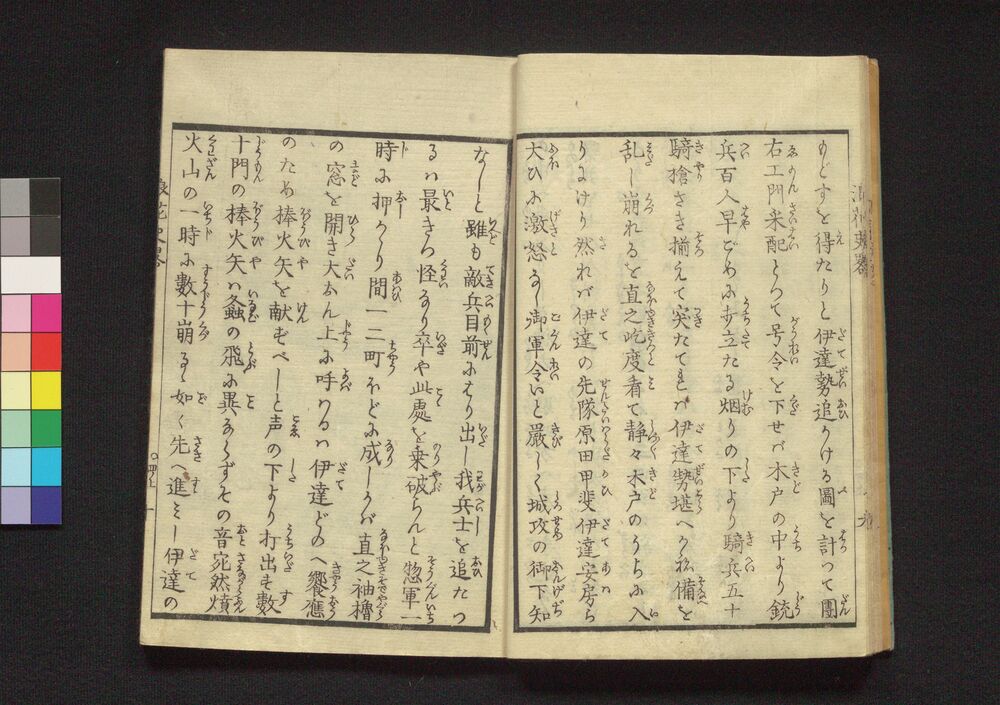 もどすを得たりと伊達勢追かける圖を計つて團
右エ門采配とつて号令を下せバ木戸の中より銃
兵百人早ごめに寺立たる烟りの下より騎兵五十
騎搶さき揃えて突たてれバ伊達勢堪へかね備を
乱し崩れるを直之屹度看て静々木戸のうちふ入
りにけり然れバ伊達の先隊原田甲斐伊達安房ら
大ひふ激怒なし御軍令いと厳しく城攻の御下知
なしと雖も敵兵目前ふはり出し我兵士を追たつ
るハ最きつ怪なり卒や此處を乗破らんと惣軍一
時ふ押かゝり間一二町ほどふ成しかバ直之袖櫓
の窓を開き大おん上ふ呼はるハ伊達どのへ饗應
のため捧火矢を献ずべしと声の下より打出す数
十門の捧火矢ハ螽の飛ふ異ならずその音宛然燌
火山の一時ふ數十崩るゝ如く先へ進ミし伊達の